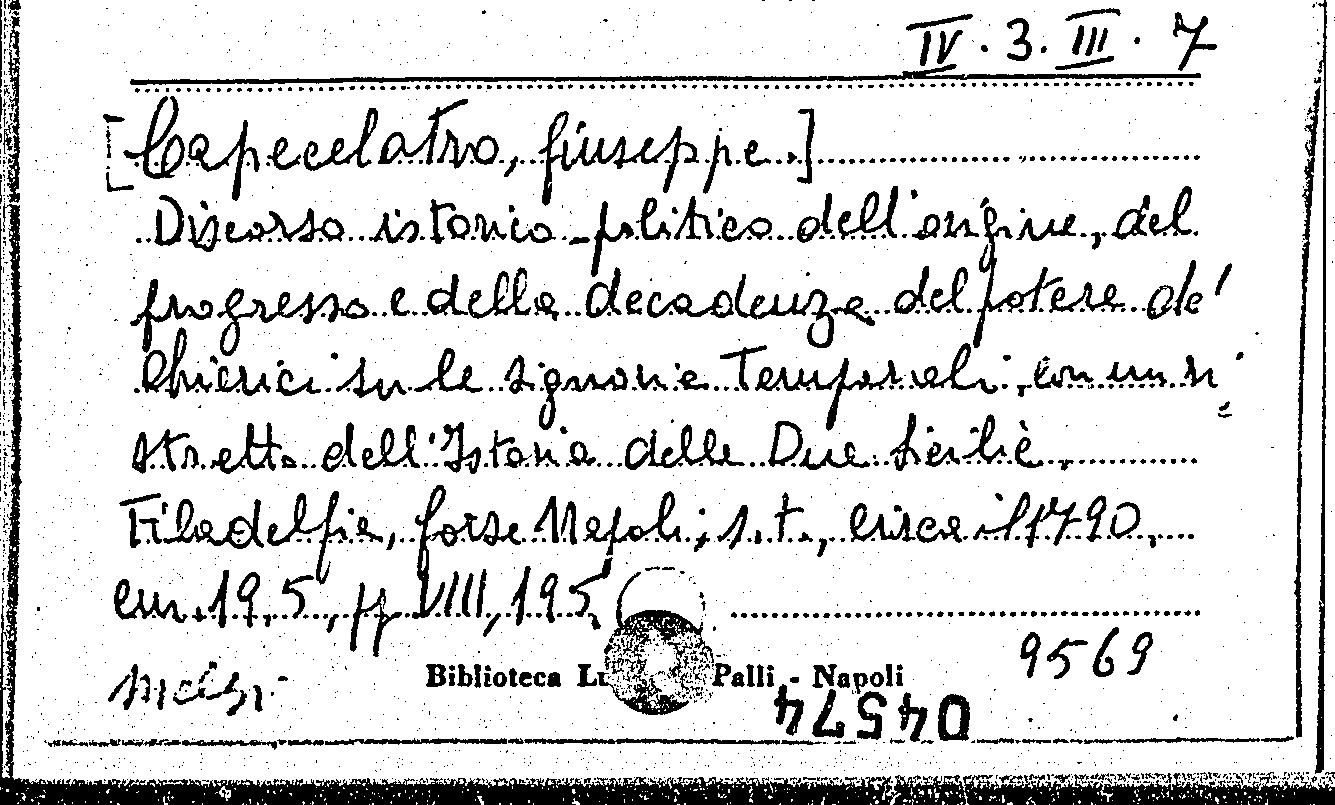 IV. 3. III. 7
[Capecelatro, Giuseppe.]
Discorso istorico-politico dell'origine, del
progresso e della decadenza del potere de'
Chierici su le signorie Temporali, con un ri=
stretto dell'Istoria delle Due Sicilie.
Filadelfia, forse Napoli, s.t., circa il 1790.
cm. 19,5, pp VIII, 195
9569
Biblioteca Lu Palli - Napoli
04574